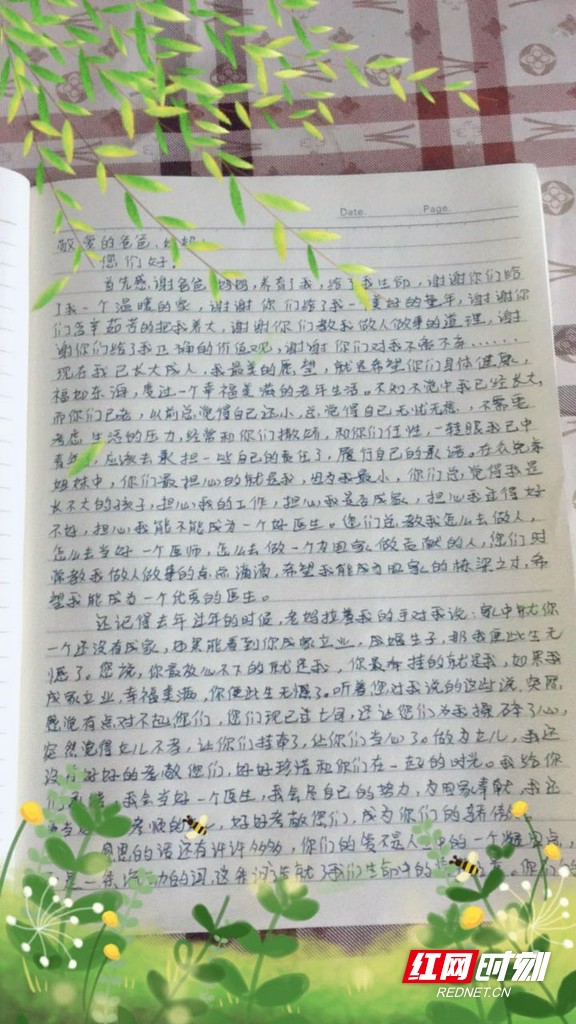 Date. Page.
敬爱的爸爸、妈妈:
您们好!
首先感谢爸爸妈妈,养育了我,给了我生命,谢谢你们给
了我一个温暖的家,谢谢你们给了我一美好的童年,谢谢你
们含辛茹苦的把我养大,谢谢你们教我做人做事的道理,谢
谢你们给了我正确的价值观,谢谢你们对我不离不弃......
现在我已长大成人,我最美的愿望,就是希望你们身体健康,
福如东海,度过一个幸福美满的老年生活。不知不觉中我已经长大,
而你们已老,以前总觉得自己还小,总觉得自己无忧无虑,不需要
考虑生活的压力,经常和你们撒娇,和你们任性,一转眼我已中
应该去承担一些自己的责任了,履行自己的承诺。在众兄弟
姐妹中,你们最担心的就是我,因为我最小,你们总觉得我是
长不大的孩子,担心我的工作,担心我是否成家,担心我过得好
不好,担心我能不能成为一个好医生。您们总教我怎么去做人,
怎么去当好一个医师,怎么去做一个为国家做贡献的人,您们时
常教我做人做事的点点滴滴,希望我能成为国家的栋梁之才,希
望我能成为一个优秀的医生。
还记得去年过年的时候,老妈拉着我的手对我说:家中就你
一个还没有成家,如果能看到你成家立业,成婚生子,那我便此生无
憾了。您说,你最放心不下的就是我,你最牵挂的就是我,如果我
成家立业,幸福美满,你便此生无憾了。听着您对我说的这些话,突然
感觉有点对不起您们,您们现已过七旬,还让您们为我操碎了心,
突然觉得女儿不孝,让你们牵挂了,让你们当心了。做为女儿,我还
没有好好的孝敬您们,好好珍惜和你们在一起的时光。我给你
们,我会当好一个医生,我会尽自己的努力,为国家奉献,我还
好好孝敬您们,成为你们的骄傲
感恩的话还有许许多多,你们的爱不是人中的一个
是一条流动的河,这条河造就了我们生命中的
红网时刻
REDNET.CN